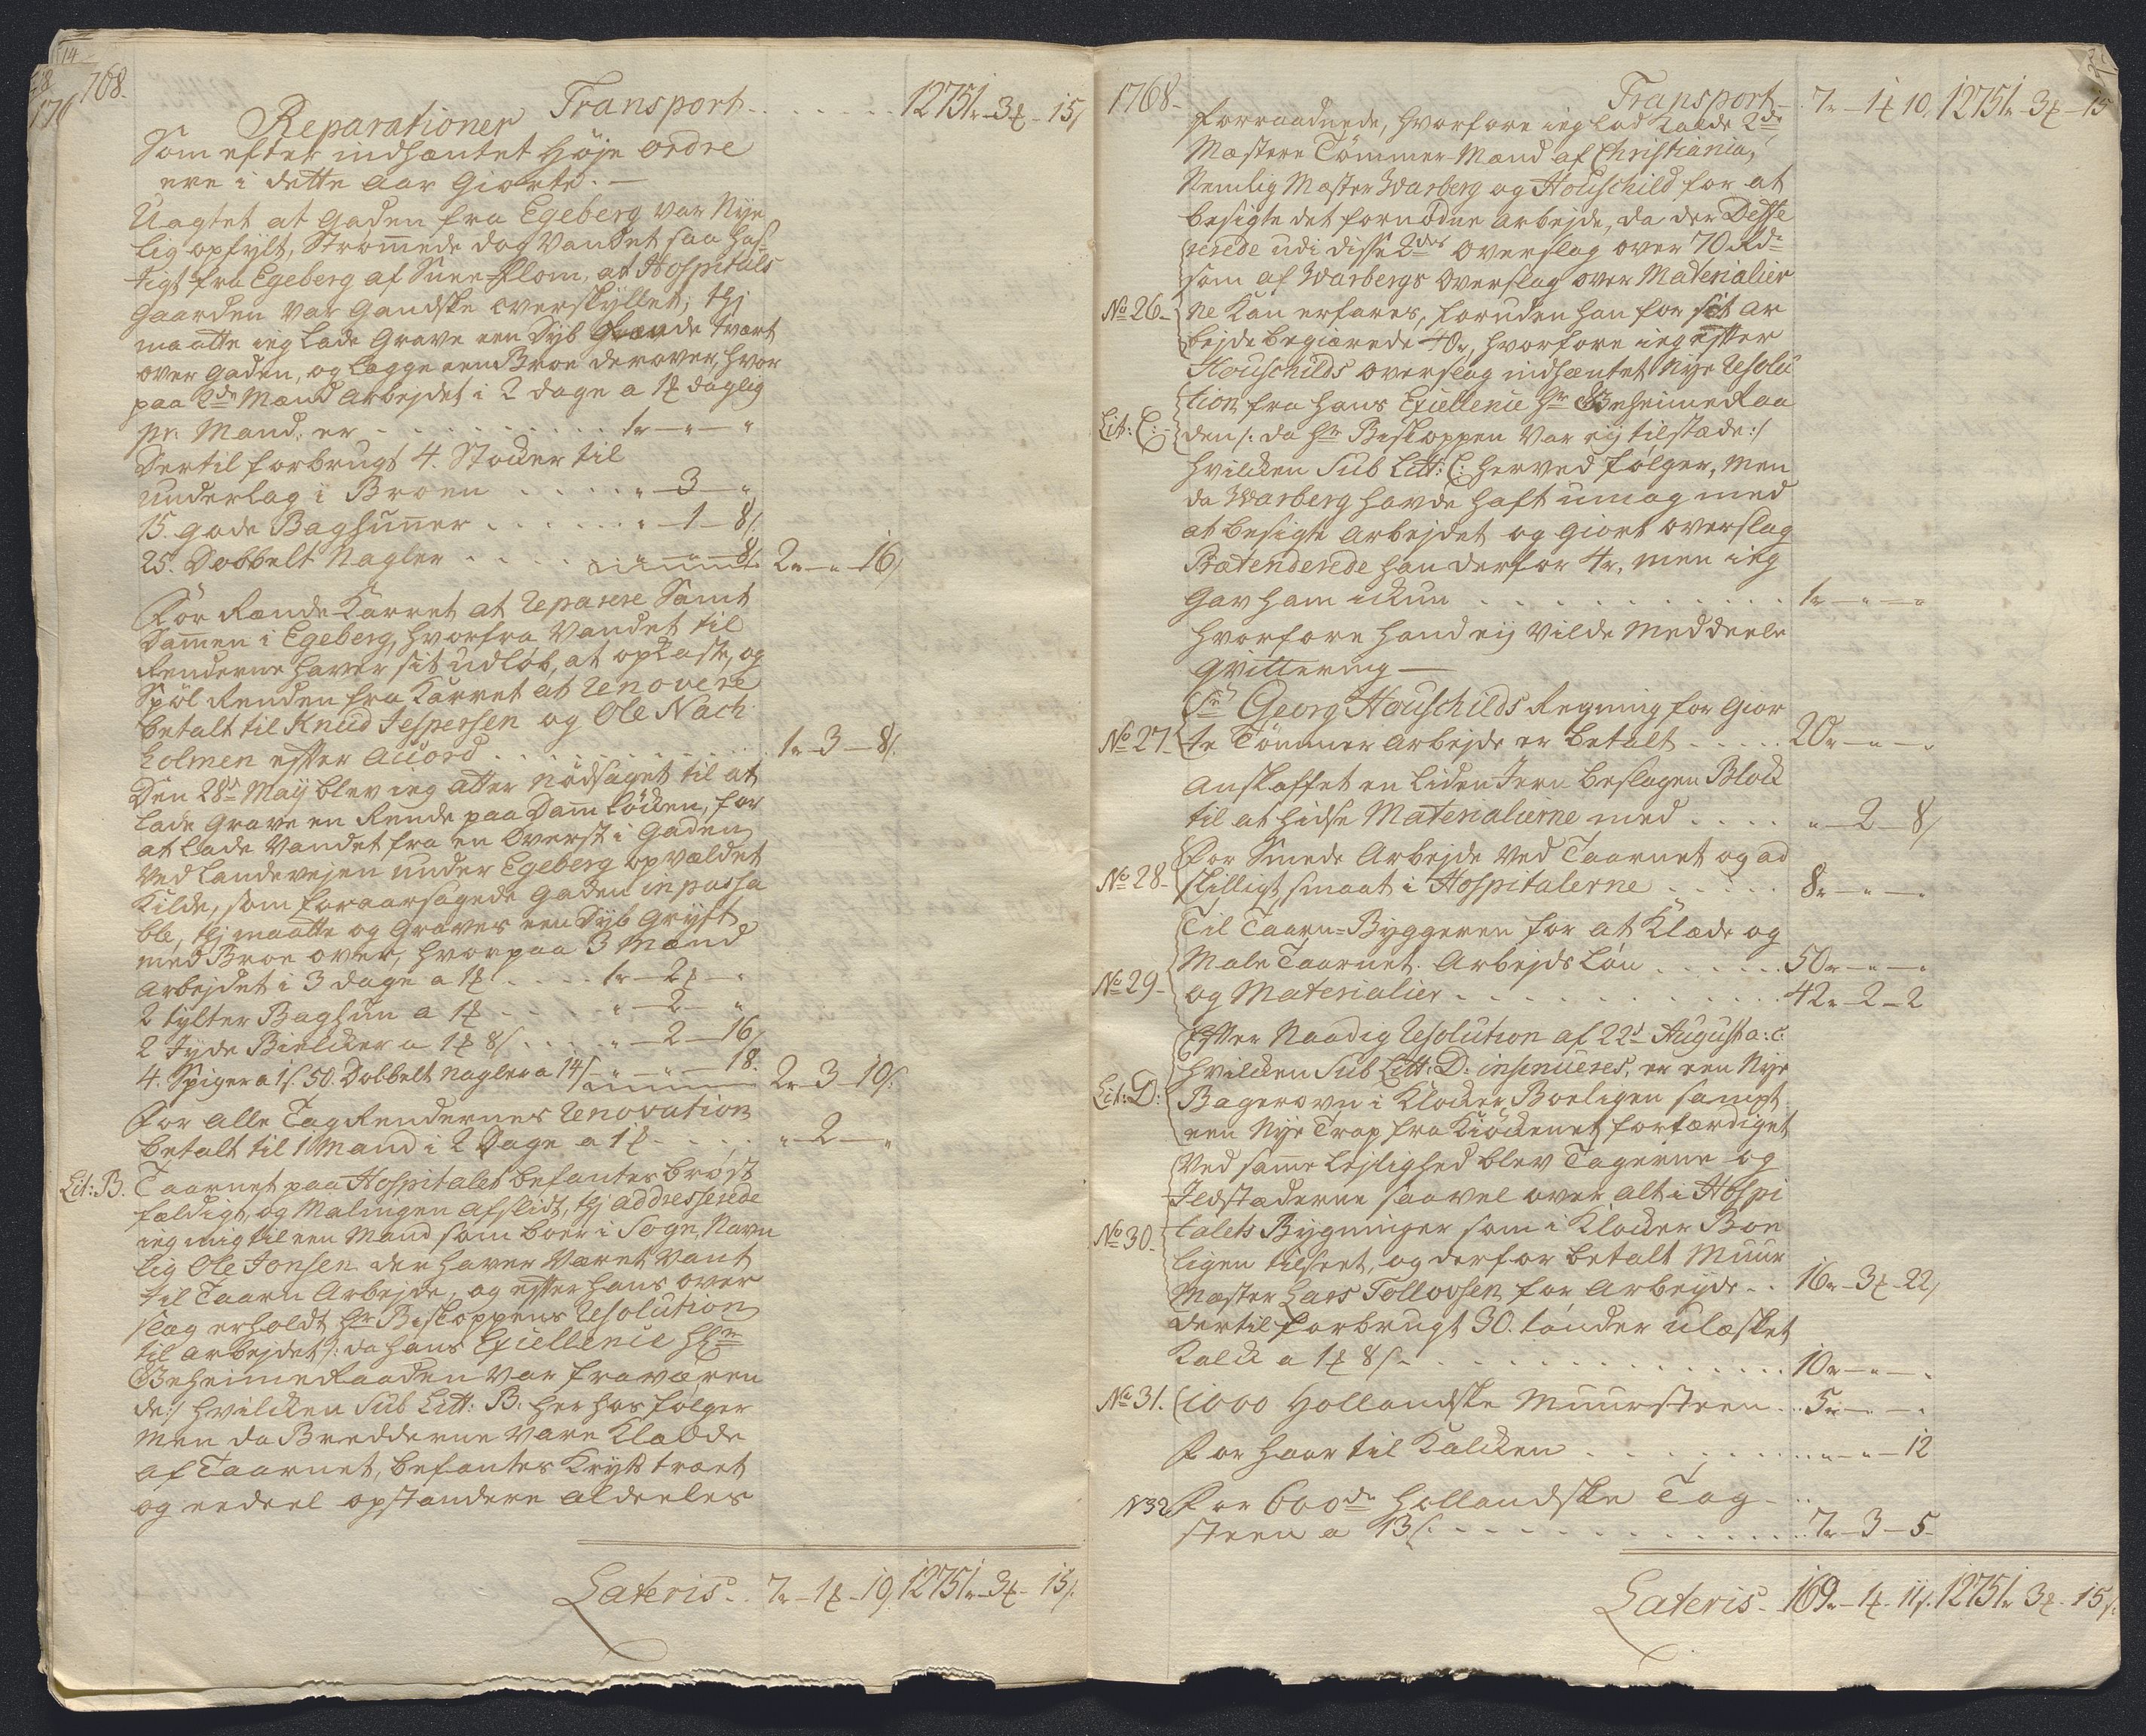 14
1768.
Transport - - - 12751r - 3 - 15
Reparationer
Som efter indhæntet Høje ordre
ere i dette aar Giorte. —
Uagtet at Gaden fra Egeberg var Nye
lig opfylt, Strømmede dog Vandet saa has
tigt fra Egeberg af Snee-flom, at Hospitals
Gaarden var Gandske overskyllet, thj
maatte ieg lade Grave een Dyb Grøvde tvært
over Gaden, og Lægge een Broe derover, hvor
paa 2de Mænd Arbejdet i 2 dage a 1 daglig
pr. Mand, er - - - 1r - " - "
Dertil forbrugt 4. Stocker til
underlag i Broen - - - " - 3 - "
15. gode Baghunner - - - " - 1 - 8
25. Dobbelt Nagler - - - " - " - 8 2r - " - 16
For Rende Karret at reparere Samt
Dammen i Egeberg, hvorfra Vandet til
Renderne haver sit udløb, at opkaste, og
Spøl Renden fra Karret at renovere
betalt til Knud Jespersen og Ole Nach
holmen efter Accord - - - 1r - 3 - 8
Den 28de Maij blev ieg atter nødsaget til at
lade Grave en Rende paa Dam løcken, for
at lade Vandet fra en Øverst i Gaden
ved Landevejen under Egeberg opvældet
Kilde, som foraarsagede Gaden inpassa
ble, thj maatte og Graves een Dyb Grøft
med Broe over, hvorpaa 3 Mænd
Arbejdet i 3 dage a 1 - - - 1r - 2 - "
2 tylter Baghun a 1 - - - " - 2 - "
2 Tyde Bielcker a 1 8 - - - " - 2 - 16
4. Spiger a 1 s. 50. Dobbelt nagler a 14 - " - " - 18. 2r - 3 - 10
For alle Tag Rendernes renovation
betalt til 1 Mand i 2 Dage a 1 - - - " - 2 - "
Lit: B. Taarnet paa Hospitalet befantes brøst
fældigt, og Malingen afslidt, thj addresserede
ieg mig til een Mand som boer i Sogn, Navn
lig Ole Jonsen der haver været vant
til Taarn Arbejde, og efter hans over
slag erholdt Hr Biskoppens Resolution
til Arbejdet /: da hans Excellence Hr
Geheimeraaden var fraværen
de :/ hvilcken Sub Litt: B: her hos følger
men da Bredderne vare Klædde
af Taarnet, befantes Krydstræet
og eendeel opstandere aldeeles
Lateris - 7r - 1 - 10 12751r - 3 - 15
1768.
Transport - 7r - 1 10. 12751r - 3 - 15
forraadnede, hvorfore ieg lod kalde 2de
Mestere Tømmer-Mænd af Christiania,
Nemlig Mester Warberg og Houschild for at
besigte det fornødne arbejde, da der Deffe
rerede udi disse 2des overslag over 70 Rdr
som af Warbergs overslag over Materialier
No 26. ne Kan erfares, foruden han for sit ar
bejde begiærede 40r, hvorfore ieg efter
Houschilds overslag indhæntet Nye Resolu
tion fra Hans Excellence Hr Geheimeraa
Lit: C: den /: da Hr Biskoppen var ej tilstæde :/
hvilcken Sub Litt: C: herved følger, men
da Warberg havde haft umag med
at besigte Arbejdet og giort overslag
Prætenderede han derfor 4r, men ieg
gav ham ickun - - - 1r - " - "
hvorfore hand ej vilde meddeele
Qvittering —
Sr Georg Houschilds Regning for Gior
No 27. te Tømmer Arbejde er betalt - - - 20r - " - "
Anskaffet en liden Jern beslagen Block
til at hidse Materialierne med - - - " - 2 - 8
For Smede Arbejde ved Taarnet og ad
No 28. skilligt smaat i Hospitalerne - - - 8r - " - "
Til Taarn-Byggeren for at Klæde og
Male Taarnet. Arbejds Løn - - - 50r - " - "
No 29. og Materialier - - - 42r - 2 - 2
Efter Naadig Resolution af 22d Augusti a: c.
hvilcken Sub Litt: D. insinueres, er een Nye
Lit: D: Bagerovn i Klocker Boeligen sampt
een Nye Trap fra Kiøckenet forfærdiget
Ved samme lejlighed blev Tagerne og
Ildstæderne saavel over alt i Hospi
No 30. talets Bygninger som i Klocker Boe
ligen tilseet, og derfor betalt Muur
Mester Lars Tollovsen for Arbejde - - 16r - 3 - 22
dertil forbrugt 30. tønder ulæsket
Kalck a 1 8 - - - 10r - " - "
No 31. 1000 Hollandske Muursteen - - 5r - " - "
For haar til Kalcken - - - " - " - 12
N 32 For 600de Hollandske Tag
steen a 13 - - - 7r - 3 - 5
Lateris - 169r - 1 - 11. 12751r 3 - 15